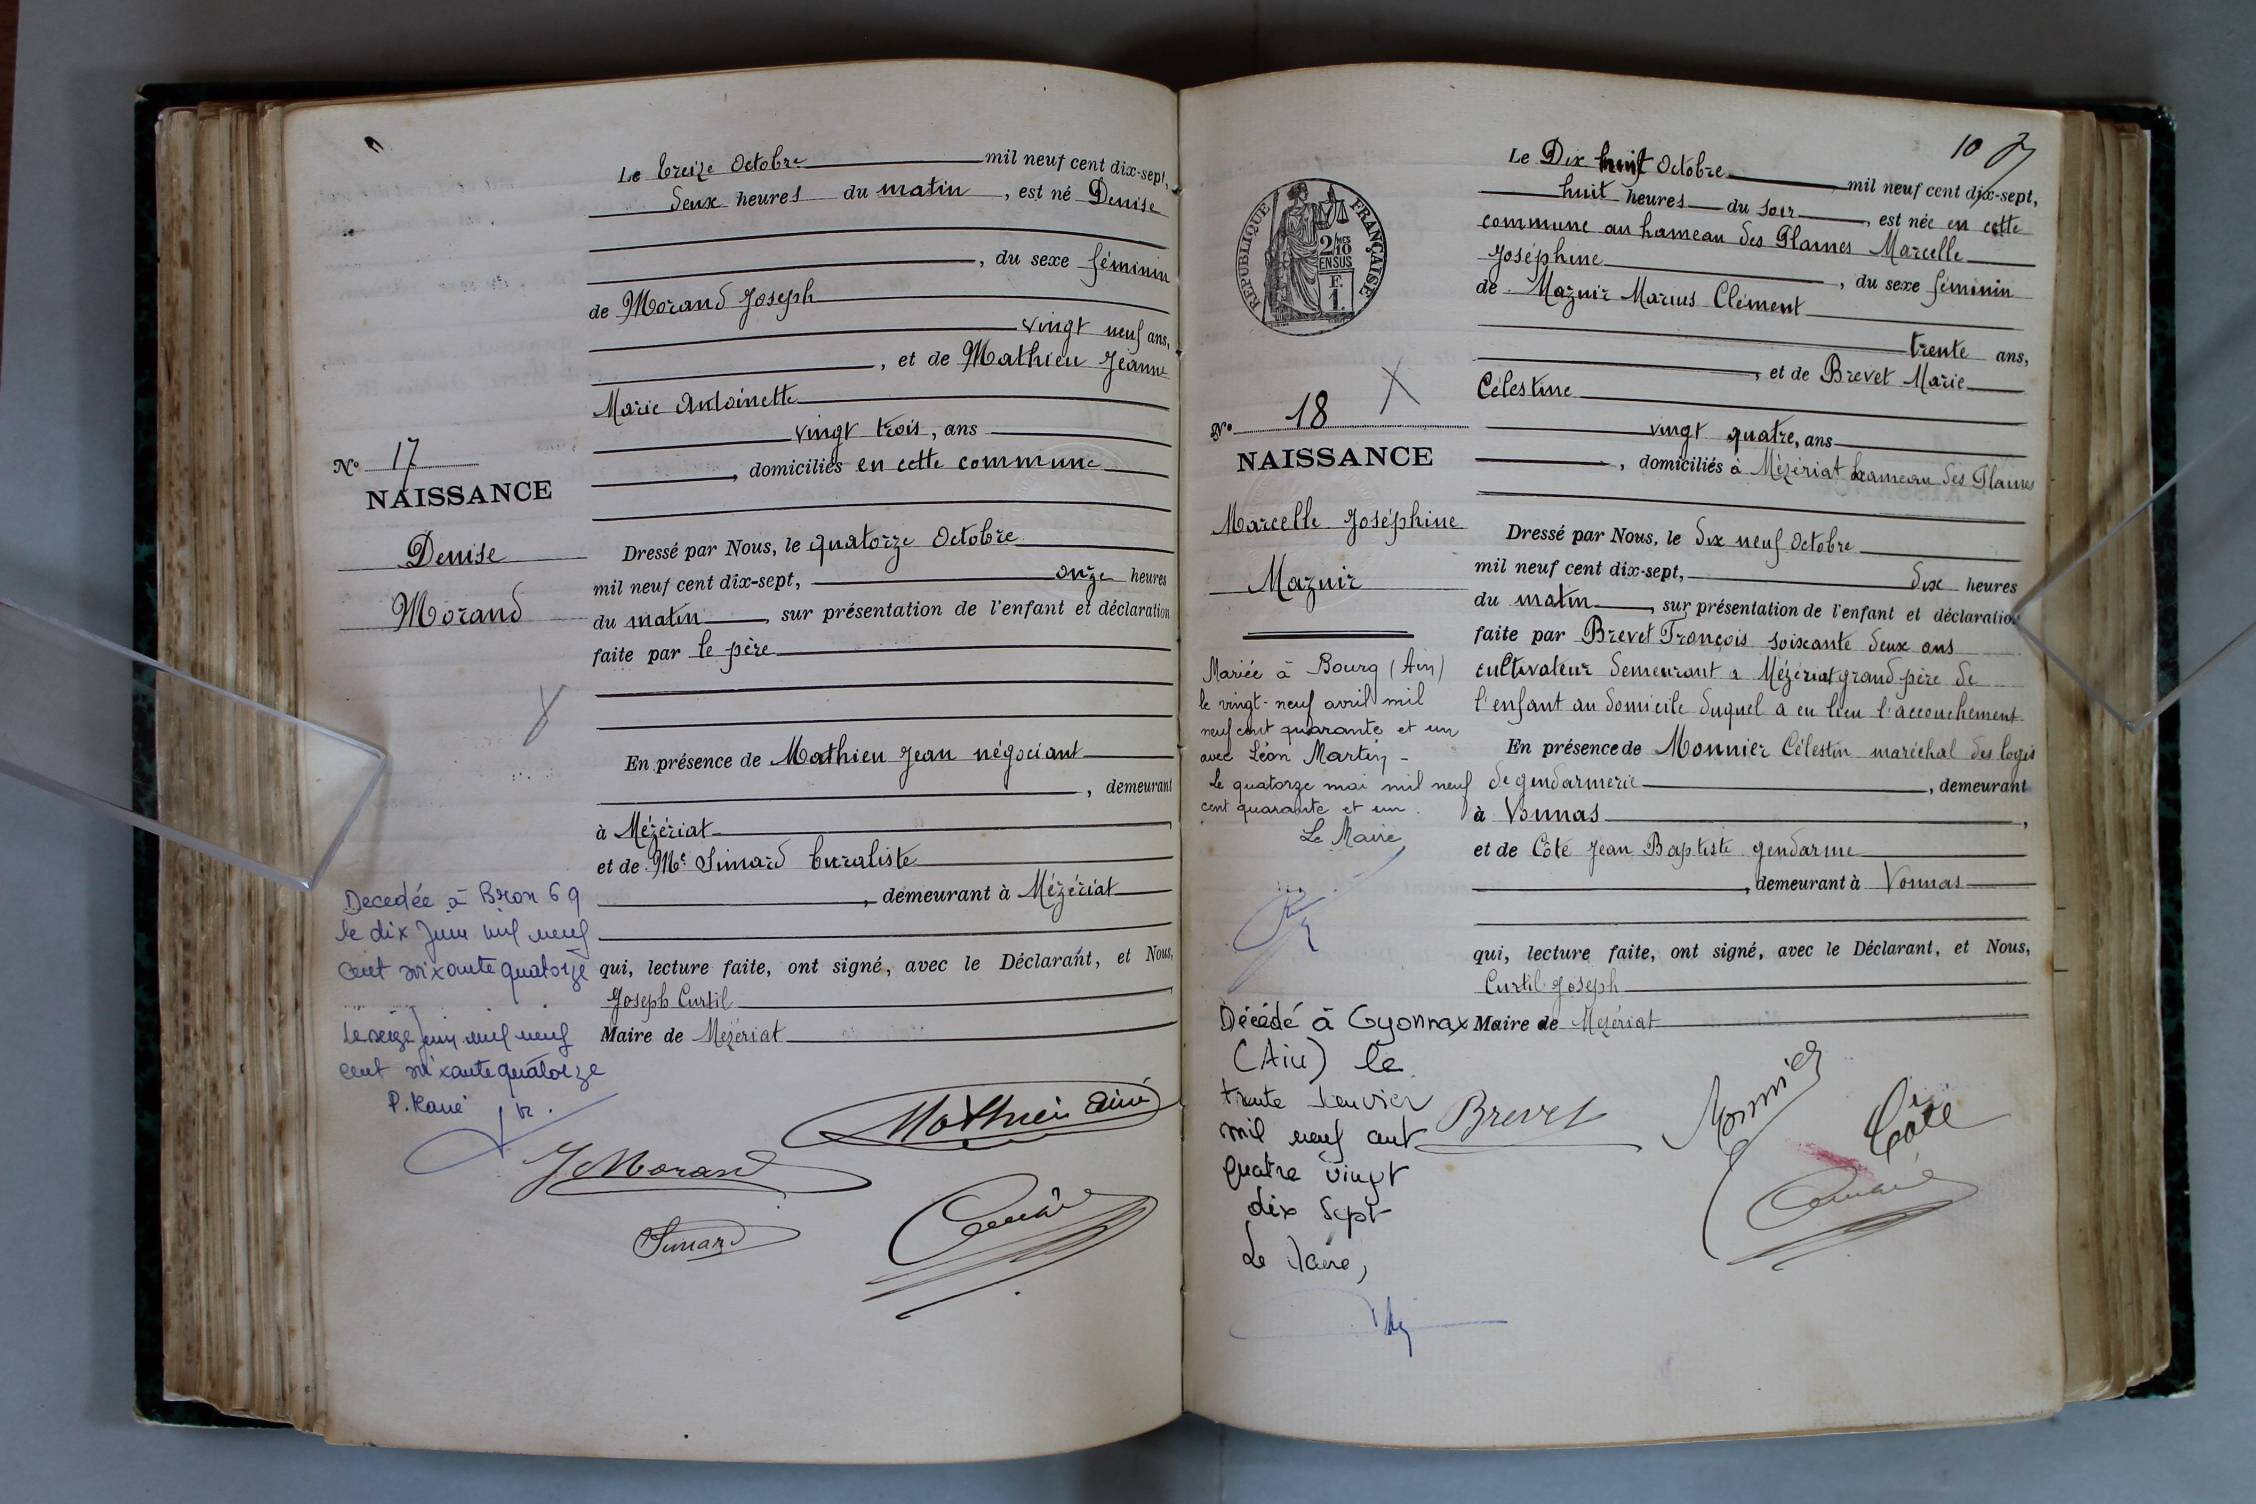 Le treize Octobre mil neuf cent dix-sept,
deux heures du matin, est né Denise
, du sexe féminin
de Morand Joseph
vingt neuf ans,
, et de Mathieu Jeanne
Marie Antoinette
vingt trois, ans
, domiciliés en cette commune
N° 17
NAISSANCE
Denise
Morand
Dressé par Nous, le quatorze Octobre
mil neuf cent dix-sept, onze heures
du matin, sur présentation de l'enfant et déclaration
faite par le père
En présence de Mathieu Jean négociant
, demeurant
à Mézériat
et de Mr Simard buraliste
, demeurant à Mézériat
qui, lecture faite, ont signé, avec le Déclarant, et Nous,
Joseph Curtil
Maire de Mézériat
Decedée à Bron 69
le dix Juin mil neuf
cent soixante quatorze
Le seize juin mil neuf
cent soixante quatorze
Mathieu aîné
J Morand
Simard
10
Le Dix huit Octobre mil neuf cent dix-sept,
huit heures du soir, est née en cette
commune au hameau des Plaines Marcelle
Joséphine
, du sexe féminin
de Maznir Marius Clément
trente ans,
, et de Brevet Marie
Célestine
vingt quatre, ans
, domiciliés à Mézériat hameau des Plaines
RÉPUBLIQUE FRANÇAISE
2/10MES
EN SUS
F.
1.
N° 18
NAISSANCE
Marcelle Joséphine
Maznir
Dressé par Nous, le dix neuf Octobre
mil neuf cent dix-sept, dix heures
du matin, sur présentation de l'enfant et déclaration
faite par Brevet François soixante deux ans
cultivateur demeurant à Mézériat grand père de
l'enfant au domicile duquel a eu lieu l'accouchement
En présence de Monnier Célestin maréchal des logis
de gendarmerie, demeurant
à Vonnas,
et de Côte Jean Baptiste gendarme
, demeurant à Vonnas
qui, lecture faite, ont signé, avec le Déclarant, et Nous,
Curtil Joseph
Maire de Mézériat
Mariée à Bourg (Ain)
le vingt-neuf avril mil
neuf cent quarante et un
avec Léon Martin -
Le quatorze mai mil neuf
cent quarante et un.
Le Maire,
Décédé à Oyonnax
(Ain) le
trente Janvier
mil neuf cent
quatre vingt
dix Sept
Le Maire,
Brevet
Monnier
Côte